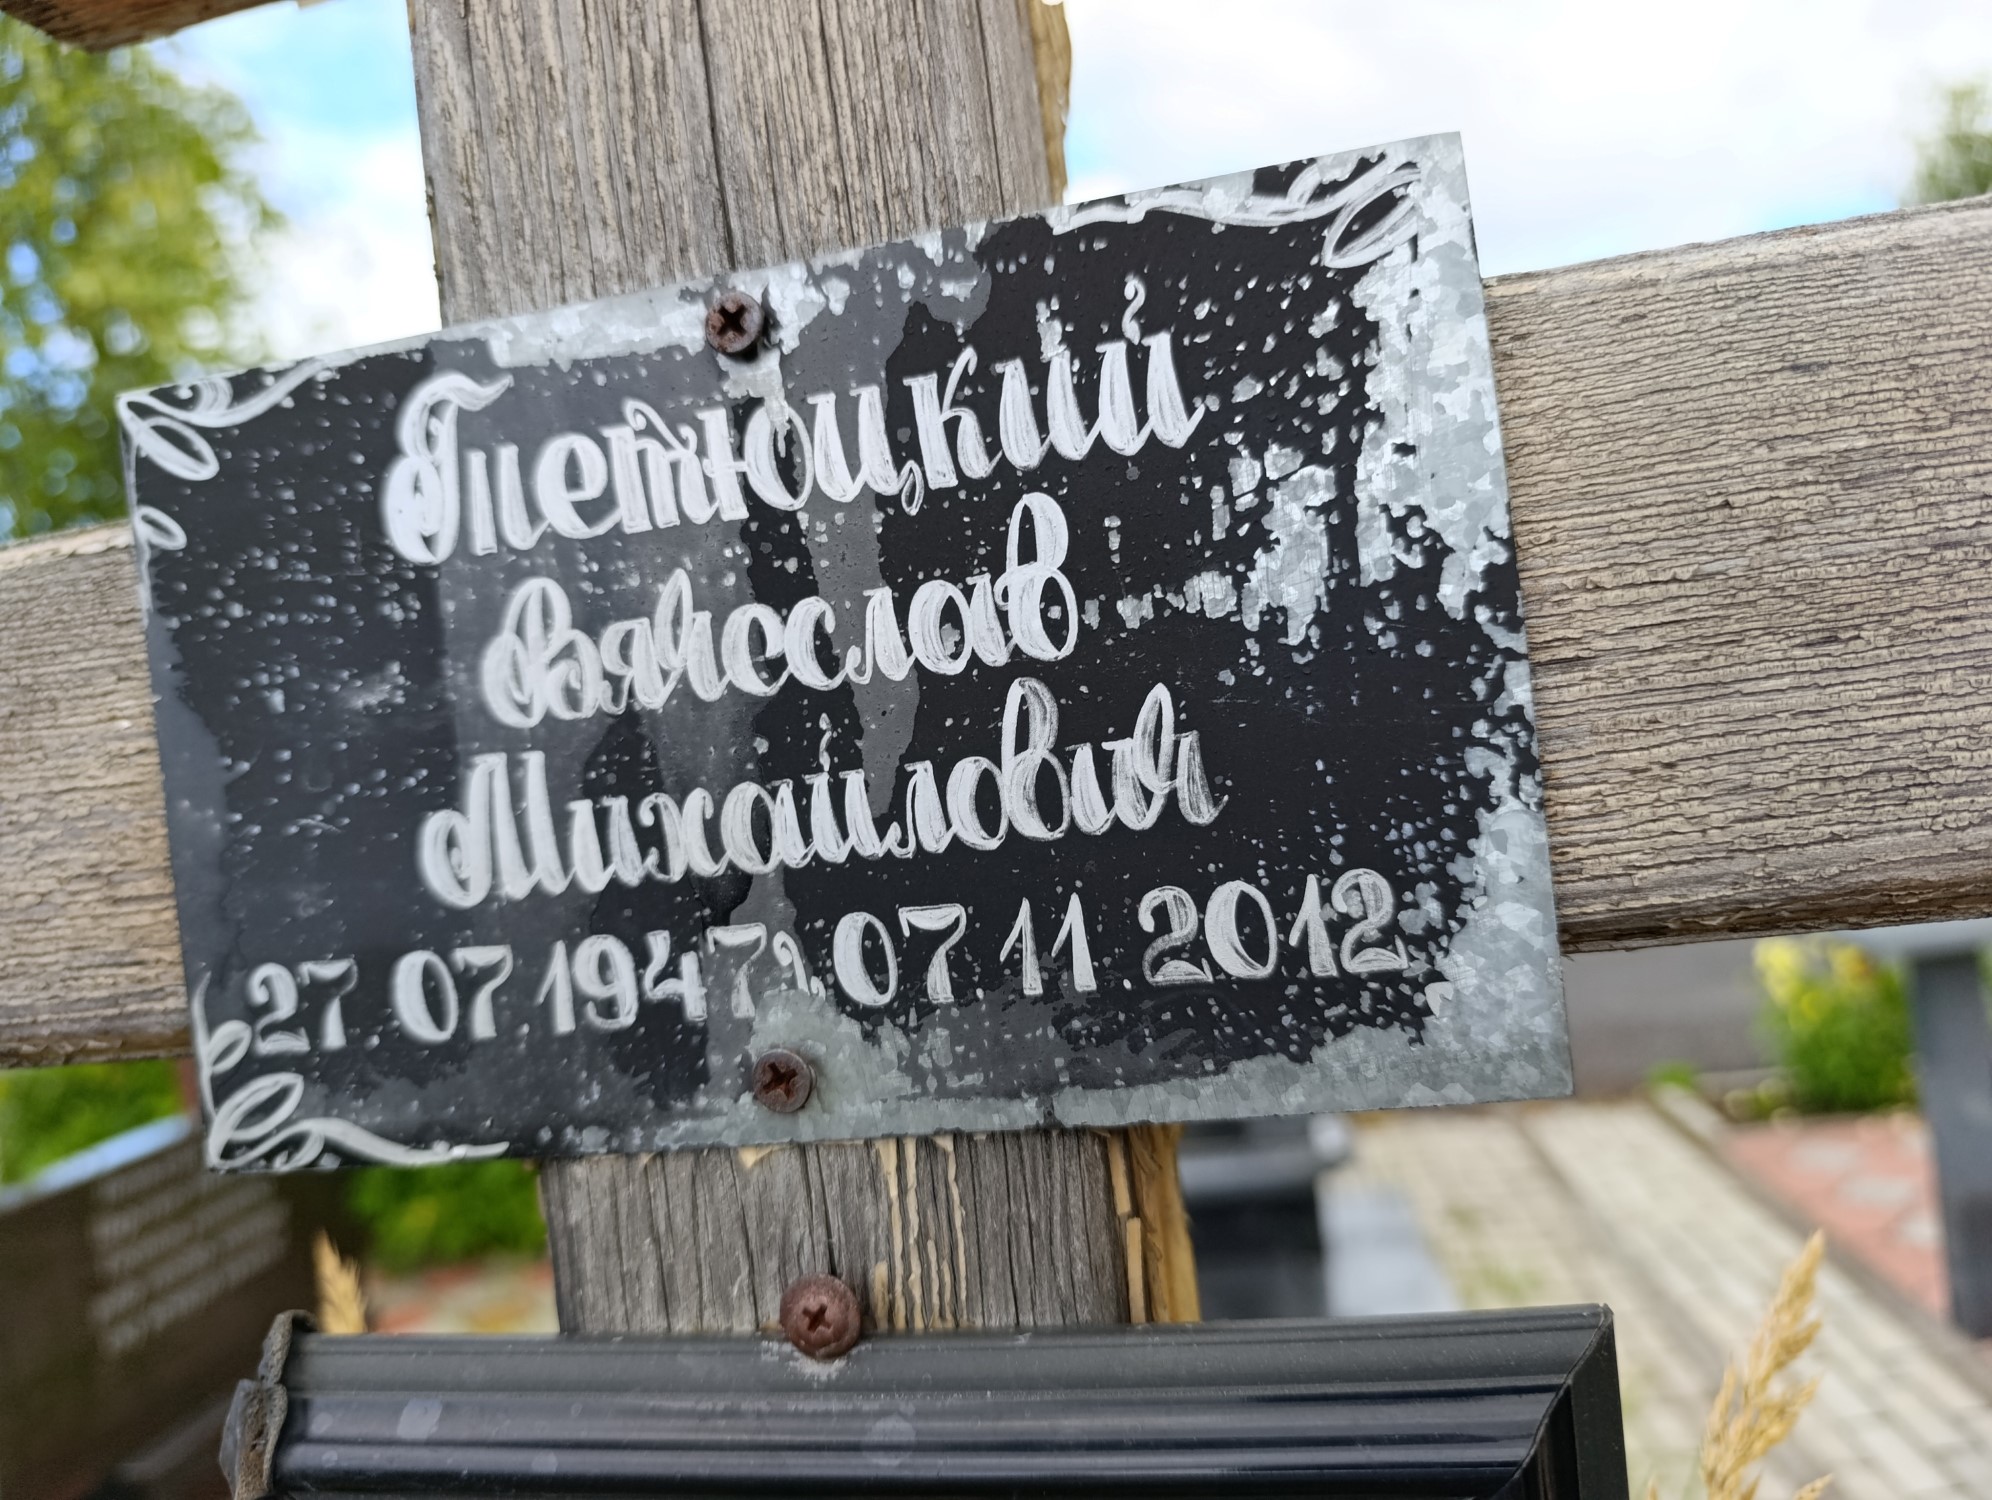 Петюцкий
Вячеслав
Михайлович
27.07.1947г. 07.11.2012